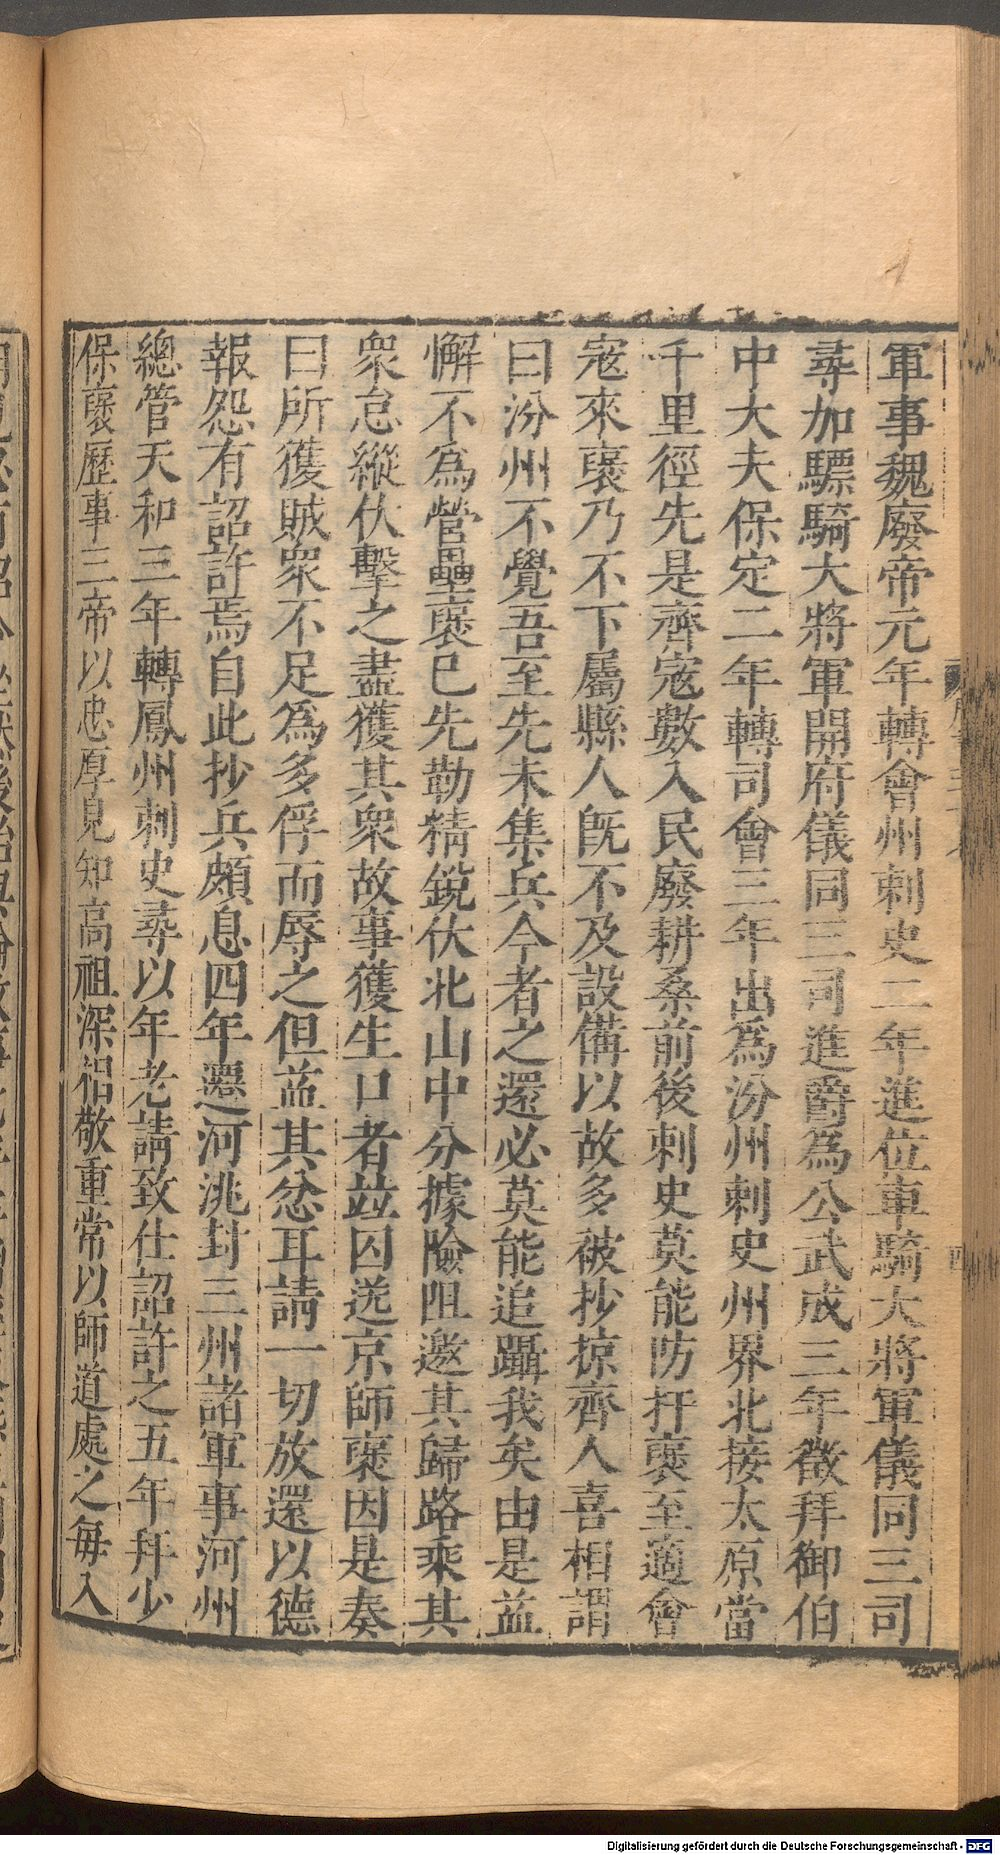 軍事魏廢帝元年轉會州刺史二年進位車騎大將軍儀同三司
尋加驃騎大將軍開府儀同三司進爵為公武成三年徵拜御伯
中大夫保定二年轉司會三年出爲汾州刺史州界北接太原當
千里徑先是齊寇數入民廢耕桑前後刺史莫能防扞襃至適會
寇來襃乃不下屬縣人旣不及設備以故多被抄掠齊人喜相謂
曰汾州不覺吾至先未集兵今者之還必莫能追躡我矣由是益
懈不為營壘襃已先勒精銳伏北山中分據險阻邀其歸路乘其
衆怠縱伏擊之盡獲其衆故事獲生口者竝囚送京師襃因是奏
曰所獲賊衆不足爲多俘而辱之但益其忿耳請一切放還以德
報怨有詔許焉自此抄兵頗息四年遷河洮封三州諸軍事河州
總管天和三年轉鳳州刺史尋以年老請致仕詔許之五年拜少
保襃歷事三帝以忠厚見知高祖深相敬重常以師道處之每入
Digitalisierung gefördert durch die Deutsche Forschungsgemeinschaft - DFG